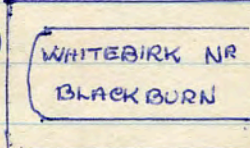 WHITEBIRK NR
BLACKBURN